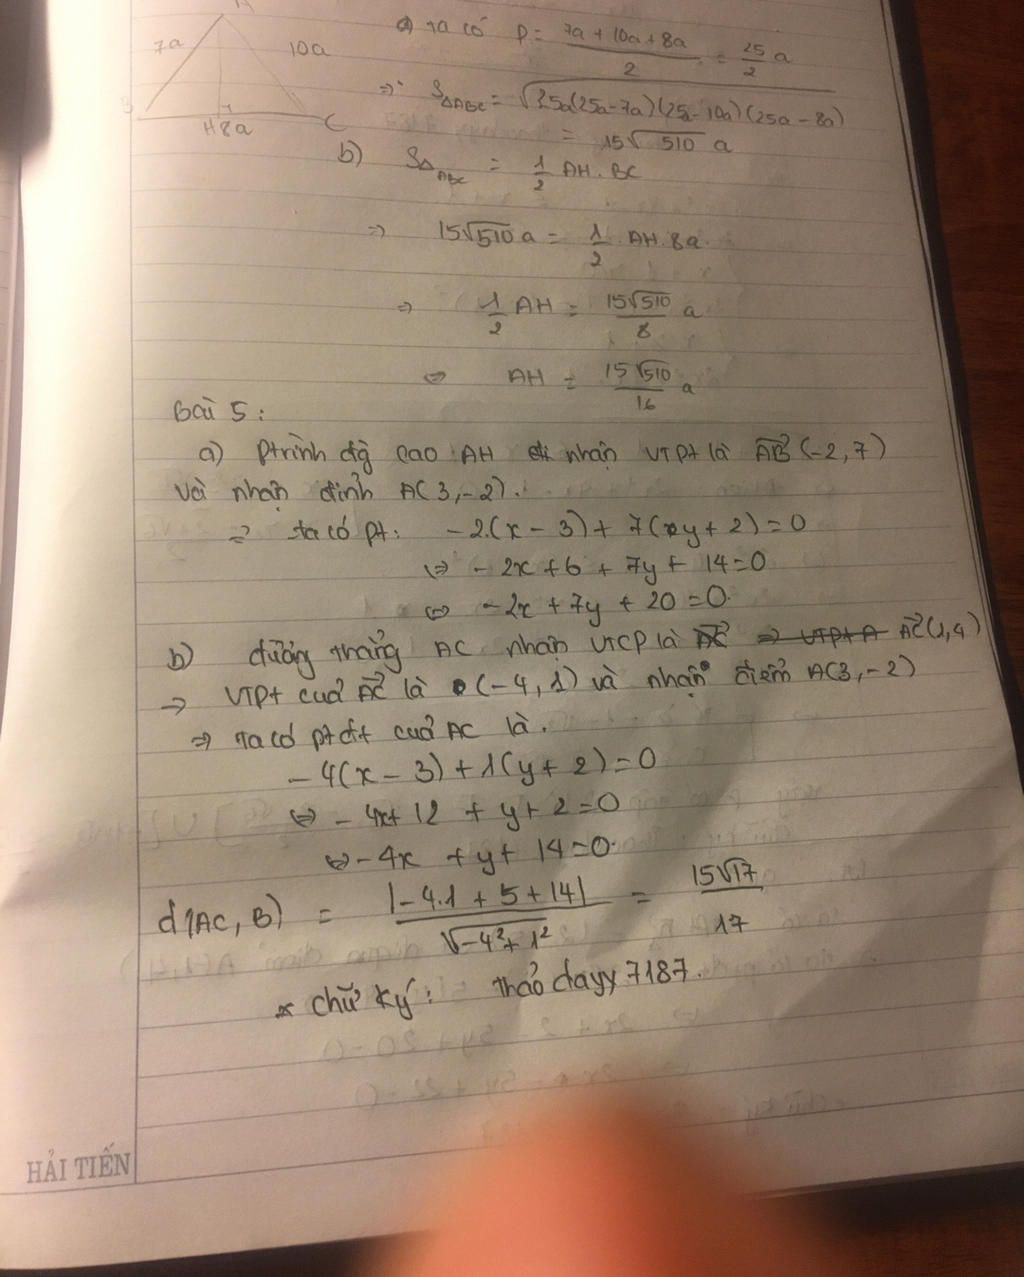 A
7a
10a
B
H 8a
C
a) Ta có P = (7a + 10a + 8a)/2 = 25/2 a
=> S△ABC = √(25a(25a-7a)(25a-10a)(25a-8a))
= 15√510 a
b) S△ABC = 1/2 AH. BC
=> 15√510 a = 1/2 . AH. 8a.
=> 1/2 AH = 15√510/8 a
<=> AH = 15√510/16 a
Bài 5:
a) Ptrình đg cao AH nhận VTPt là AB→(-2,7)
Và nhận đỉnh A(3,-2).
=> ta có pt: -2.(x - 3) + 7(y + 2) = 0
<=> - 2x + 6 + 7y + 14 = 0
<=> -2x + 7y + 20 = 0.
b) đường thẳng AC nhận VTCP là AC→ => VTPt A AC→(1,4)
→ VTPt cuả AC→ là (-4,1) và nhận điểm A(3,-2)
=> Ta có pt đt cuả AC là.
- 4(x - 3) + 1(y + 2) = 0
<=> - 4x + 12 + y + 2 = 0
<=> - 4x + y + 14 = 0.
d(AC, B) = |-4.1 + 5 + 14|/√(-4² + 1²) = 15√17/17
* chữ ký: thảo dayy 7187.
HẢI TIẾN